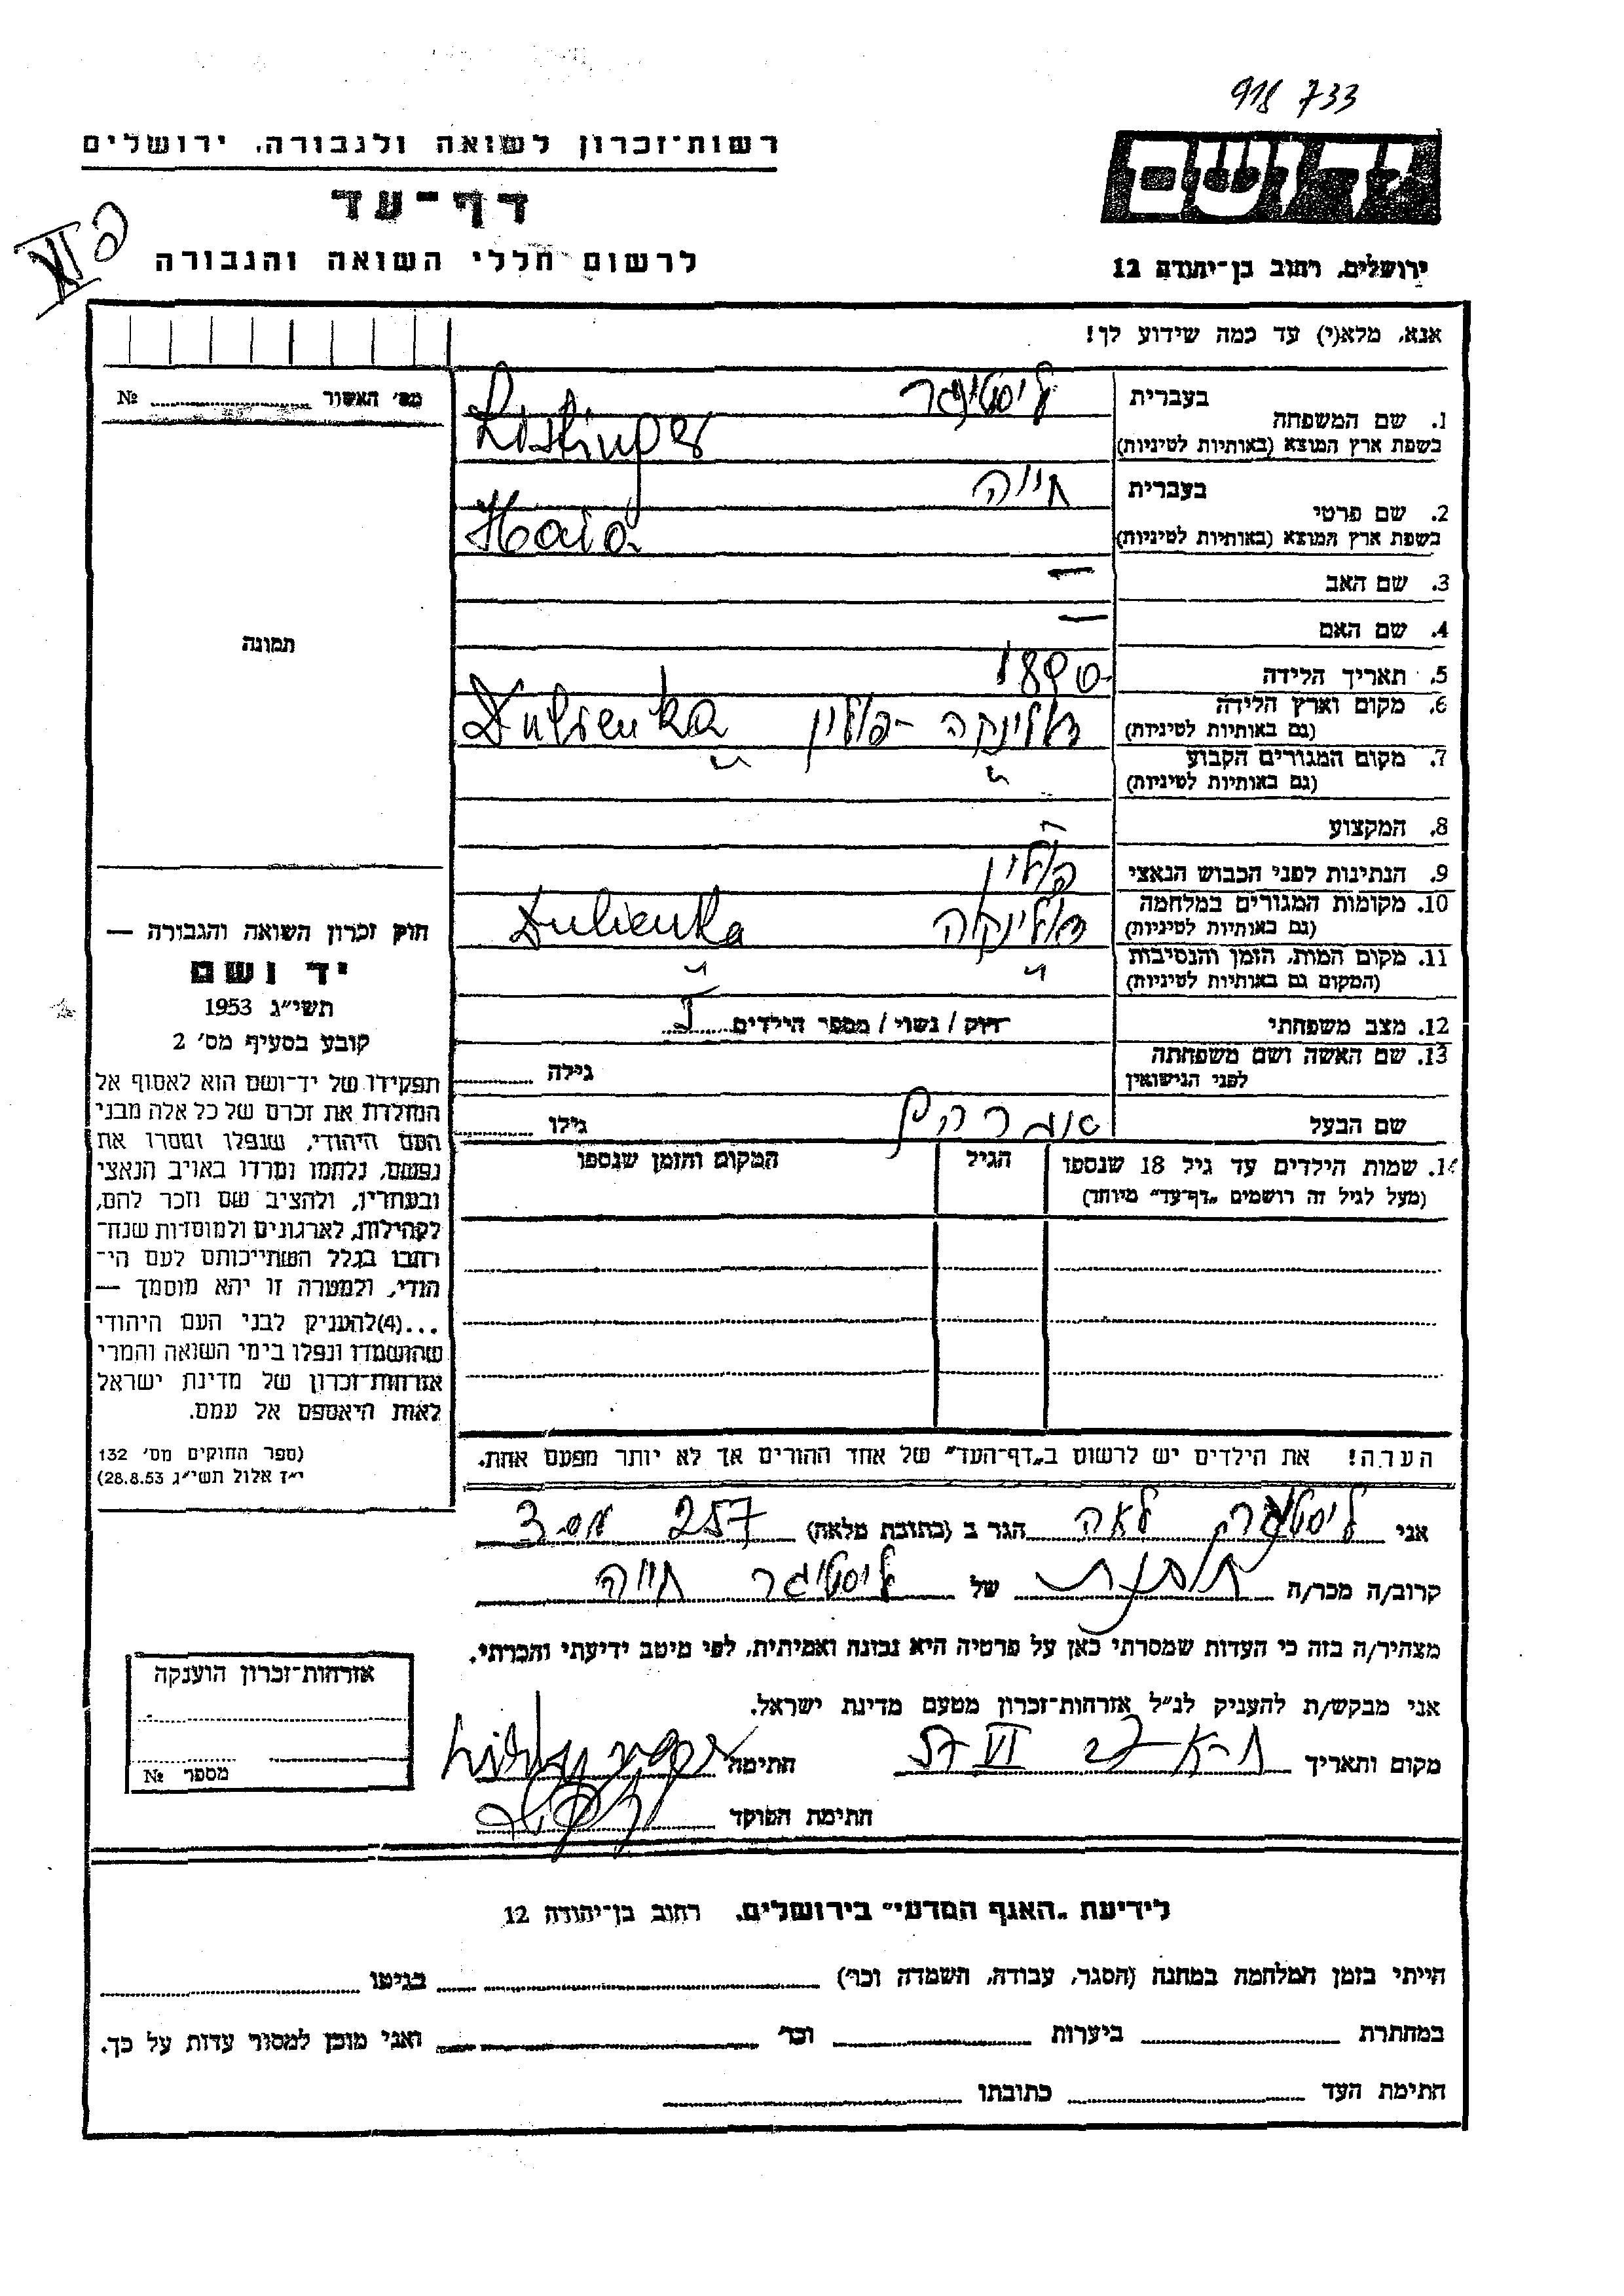 918 733
יד ושם
רשות־זכרון לשואה ולגבורה, ירושלים
דף־עד
לרשום חללי השואה והגבורה
ירושלים, רחוב בן־יהודה 12
אנא, מלא(י) עד כמה שידוע לך!
מס׳ האשור № 
1. שם המשפחה
בעברית ליסטינגר
בשפת ארץ המוצא (באותיות לטיניות) Listinger
2. שם פרטי
בעברית חייה
בשפת ארץ המוצא (באותיות לטיניות) Haia
3. שם האב —
4. שם האם —
5. תאריך הלידה 1890
6. מקום וארץ הלידה
(גם באותיות לטיניות) פולין Dubienka
7. מקום המגורים הקבוע
(גם באותיות לטיניות) " "
8. המקצוע
9. הנתינות לפני הכבוש הנאצי פולין
10. מקומות המגורים במלחמה
(גם באותיות לטיניות) Dubienka
11. מקום המות, הזמן והנסיבות
(המקום גם באותיות לטיניות) " "
12. מצב משפחתי רווק / נשוי / מספר הילדים
13. שם האשה ושם משפחתה
לפני הנישואין
גילה
שם הבעל גילו
14. שמות הילדים עד גיל 18 שנספו
(מעל לגיל זה רושמים „דף־עד” מיוחד)
הגיל
המקום והזמן שנספו
תמונה
חוק זכרון השואה והגבורה —
יד ושם
תשי״ג 1953
קובע בסעיף מס׳ 2
תפקידו של יד־ושם הוא לאסוף אל
המולדת את זכרם של כל אלה מבני
העם היהודי, שנפלו ומסרו את
נפשם, נלחמו ומרדו באויב הנאצי
ובעוזריו, ולהציב שם וזכר להם,
לקהילות, לארגונים ולמוסדות שנח־
רבו בגלל השתייכותם לעם הי־
הודי, ולמטרה זו יהא מוסמך —
...(4)להעניק לבני העם היהודי
שהושמדו ונפלו בימי השואה והמרי
אזרחות־זכרון של מדינת ישראל
לאות היאספם אל עמם.
(ספר החוקים מס׳ 132
י״ז אלול תשי״ג 28.8.53)
הערה! את הילדים יש לרשום ב„דף־העד” של אחד ההורים אך לא יותר מפעם אחת.
אני לאה הגר ב (כתובת מלאה) 257
קרוב/ה מכר/ה של ליסטיגר חייה
מצהיר/ה בזה כי העדות שמסרתי כאן על פרטיה היא נכונה ואמיתית, לפי מיטב ידיעתי והכרתי.
אני מבקש/ת להעניק לנ״ל אזרחות־זכרון מטעם מדינת ישראל.
מקום ותאריך ת-א 27 VI 57 חתימה
חתימת הפוקד
אזרחות־זכרון הוענקה
מספר №
לידיעת „האגף המדעי” בירושלים, רחוב בן־יהודה 12
הייתי בזמן המלחמה במחנה (הסגר, עבודה, השמדה וכו׳) בגיטו
במחתרת ביערות וכו׳ ואני מוכן למסור עדות על כך.
חתימת העד כתובתו